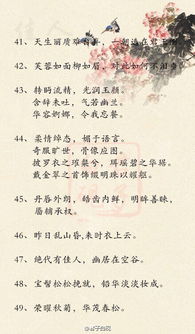 41、天生丽质难自弃，一朝选在君王侧。
42、芙蓉如面柳如眉，对此如何不泪垂。
43、转眄流精，光润玉颜。
含辞未吐，气若幽兰。
华容婀娜，令我忘餐。
44、柔情绰态，媚于语言。
奇服旷世，骨像应图。
披罗衣之璀粲兮，珥瑶碧之华琚。
戴金翠之首饰缀明珠以耀躯。
45、丹唇外朗，皓齿内鲜，明眸善睐，
靥辅承权。
46、昨日乱山昏，来时衣上云。
47、绝代有佳人，幽居在空谷。
48、宝髻松松挽就，铅华淡淡妆成。
49、荣曜秋菊，华茂春松。